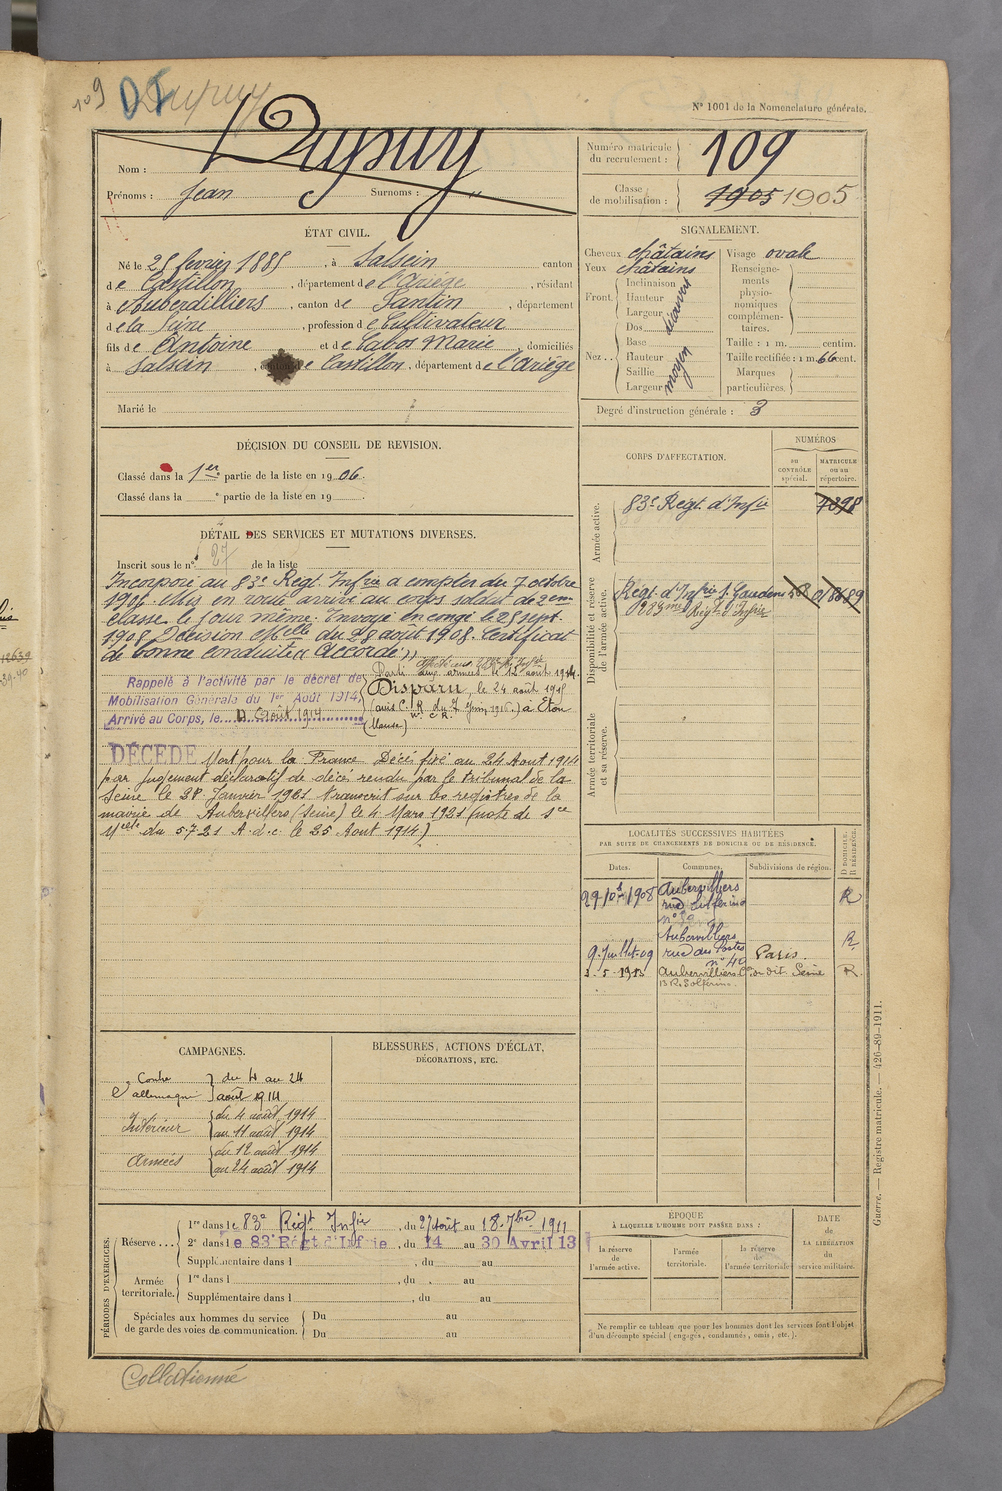 109 DJ Dupuy
N° 1001 de la Nomenclature générale.
Nom : Dupuy
Prénoms : Jean Surnoms : "
Numéro matricule du recrutement : 109
Classe de mobilisation : 1905 1905
ÉTAT CIVIL.
Né le 25 fevrier 1885, à Salsein canton
de Castillon, département de l'Ariège, résidant
à Auberdilliers, canton de Pantin, département
de la Seine, profession de Cultivateur
fils de Antoine et de Cabos Marie, domiciliés
à Salsein, canton de Castillon, département de l'Ariège
Marié le
SIGNALEMENT.
Cheveux châtains
Yeux châtains
Front. Inclinaison
Hauteur
Largeur
découvert
Nez. Dos
Base
Hauteur
Saillie
Largeur
moyen
Visage ovale
Renseignements physionomiques complémentaires.
Taille : 1 m. centim.
Taille rectifiée : 1 m. 66 cent.
Marques particulières.
Degré d'instruction générale : 3
DÉCISION DU CONSEIL DE REVISION.
Classé dans la 1er partie de la liste en 1906.
Classé dans la e partie de la liste en 19
DÉTAIL DES SERVICES ET MUTATIONS DIVERSES.
Inscrit sous le n° 27 de la liste
Incorporé au 83e Régt Infrie à compter du 7 octobre
1906. Mis en route arrivé au corps soldat de 2eme
classe le jour même. Envoyé en congé le 25 sept.
1908 Décision elle du 28 août 1908. Certificat
de bonne conduite « Accordé »
Rappelé à l'activité par le décret de
Mobilisation Générale du 1er Août 1914,
Arrivé au Corps, le 4 Août 1914
Parti aux armées le 12 août 1914.
Disparu, le 24 août 1914
(avis C.R. du 7 Juin 1916.) à Eton
(Meuse)
DÉCÉDÉ Mort pour la France Décès fixé au 24 Aout 1914
par jugement déclaratif de décès rendu par le tribunal de la
Seine le 28 Janvier 1921 transcrit sur les registres de la
mairie de Aubervilliers (Seine) le 4 Mars 1921 (note de Sce
Mlle du 5.7.21 A.d.c. le 25 Aout 1914)
CORPS D'AFFECTATION.
NUMÉROS
au CONTRÔLE spécial.
MATRICULE ou au répertoire.
Armée active.
83e Régt. d'Infie 7298
Disponibilité et réserve de l'armée active.
Régt. d'Infrie St Gaudens 568 0/8689
283me Régt d'Infrie
Armée territoriale et sa réserve.
LOCALITÉS SUCCESSIVES HABITÉES
PAR SUITE DE CHANGEMENTS DE DOMICILE OU DE RÉSIDENCE.
Dates. Communes. Subdivisions de région. D. DOMICILE. R. RÉSIDENCE.
29 1908 Aubervilliers
rue Solférino
R
9. Juillet. 09 Aubervilliers
rue des Postes
n° 40
Paris. R.
3-5-1913 Aubervilliers Seine R.
13 R. Solférino.
CAMPAGNES.
Contre l'allemagne du 4 au 24
août 1914
Intérieur du 4 août 1914
au 11 août 1914
Armées du 12 août 1914
au 24 août 1914
BLESSURES, ACTIONS D'ÉCLAT,
DÉCORATIONS, ETC.
PÉRIODES D'EXERCICES.
Réserve... 1re dans le 83e Régt Infie, du 27 août au 18. 7bre 1911
2e dans le 83e Régt d'Infrie, du 14 au 30 Avril 13
Supplémentaire dans l , du au
Armée territoriale. 1re dans l , du au
Supplémentaire dans l , du au
Spéciales aux hommes du service de garde des voies de communication. Du au
Du au
ÉPOQUE
À LAQUELLE L'HOMME DOIT PASSER DANS :
la réserve de l'armée active.
l'armée territoriale.
la réserve de l'armée territoriale
DATE de LA LIBÉRATION du service militaire.
Ne remplir ce tableau que pour les hommes dont les services font l'objet
d'un décompte spécial (engagés, condamnés, omis, etc.).
Guerre. — Registre matricule. — 426-89-1911.
Collationné